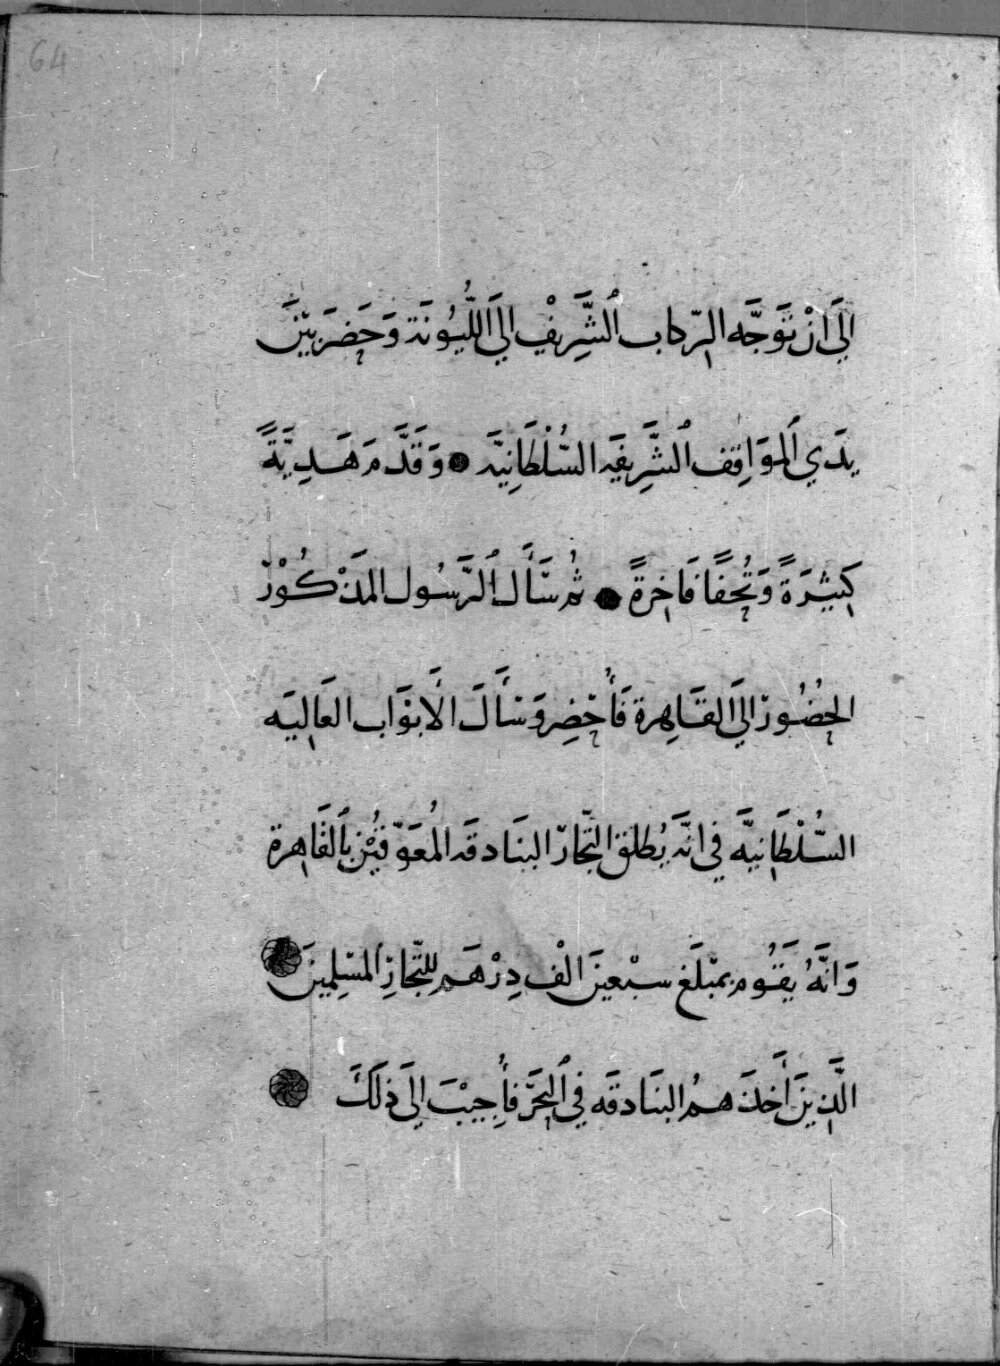 64
اِلَيَ اَنْ تَوَجَّه الرّكاب ٱلشَّرِيفْ اِلَيَ اللُّيُونَة وَحَضَرَ بَيْنَ
يدَي ٱلموَاقِف ٱلشَّرِيفَه السُّلْطَانِيَّه وَقَدَّمَ هَدِيَّةً
كَثِيْرَةً وَتُحَفًا فَاخِرةً ثُم سَأَل ٱلرَّسُول المَذكُوْر
الحُضُور اِلَيَ القَاهِرة فَأُحْضِر وَسَأَلَ الأَبوَاب العَاليَه
السُّلْطَانِيَّه في انَّه يُطلق التّجّار البنَادقَه المُعَوَّقيْن بٱلقَاهرة
وَانَّهُ يَقُوم بمبْلَغ سبْعينَ الْف دِرْهَم للتّجار ٱلمسْلِمينَ
الَّذِينَ أَخَذَهم البنَادقَه في ٱلبَحْر فَأُجِيْبَ اِلَيَ ذلَكَ